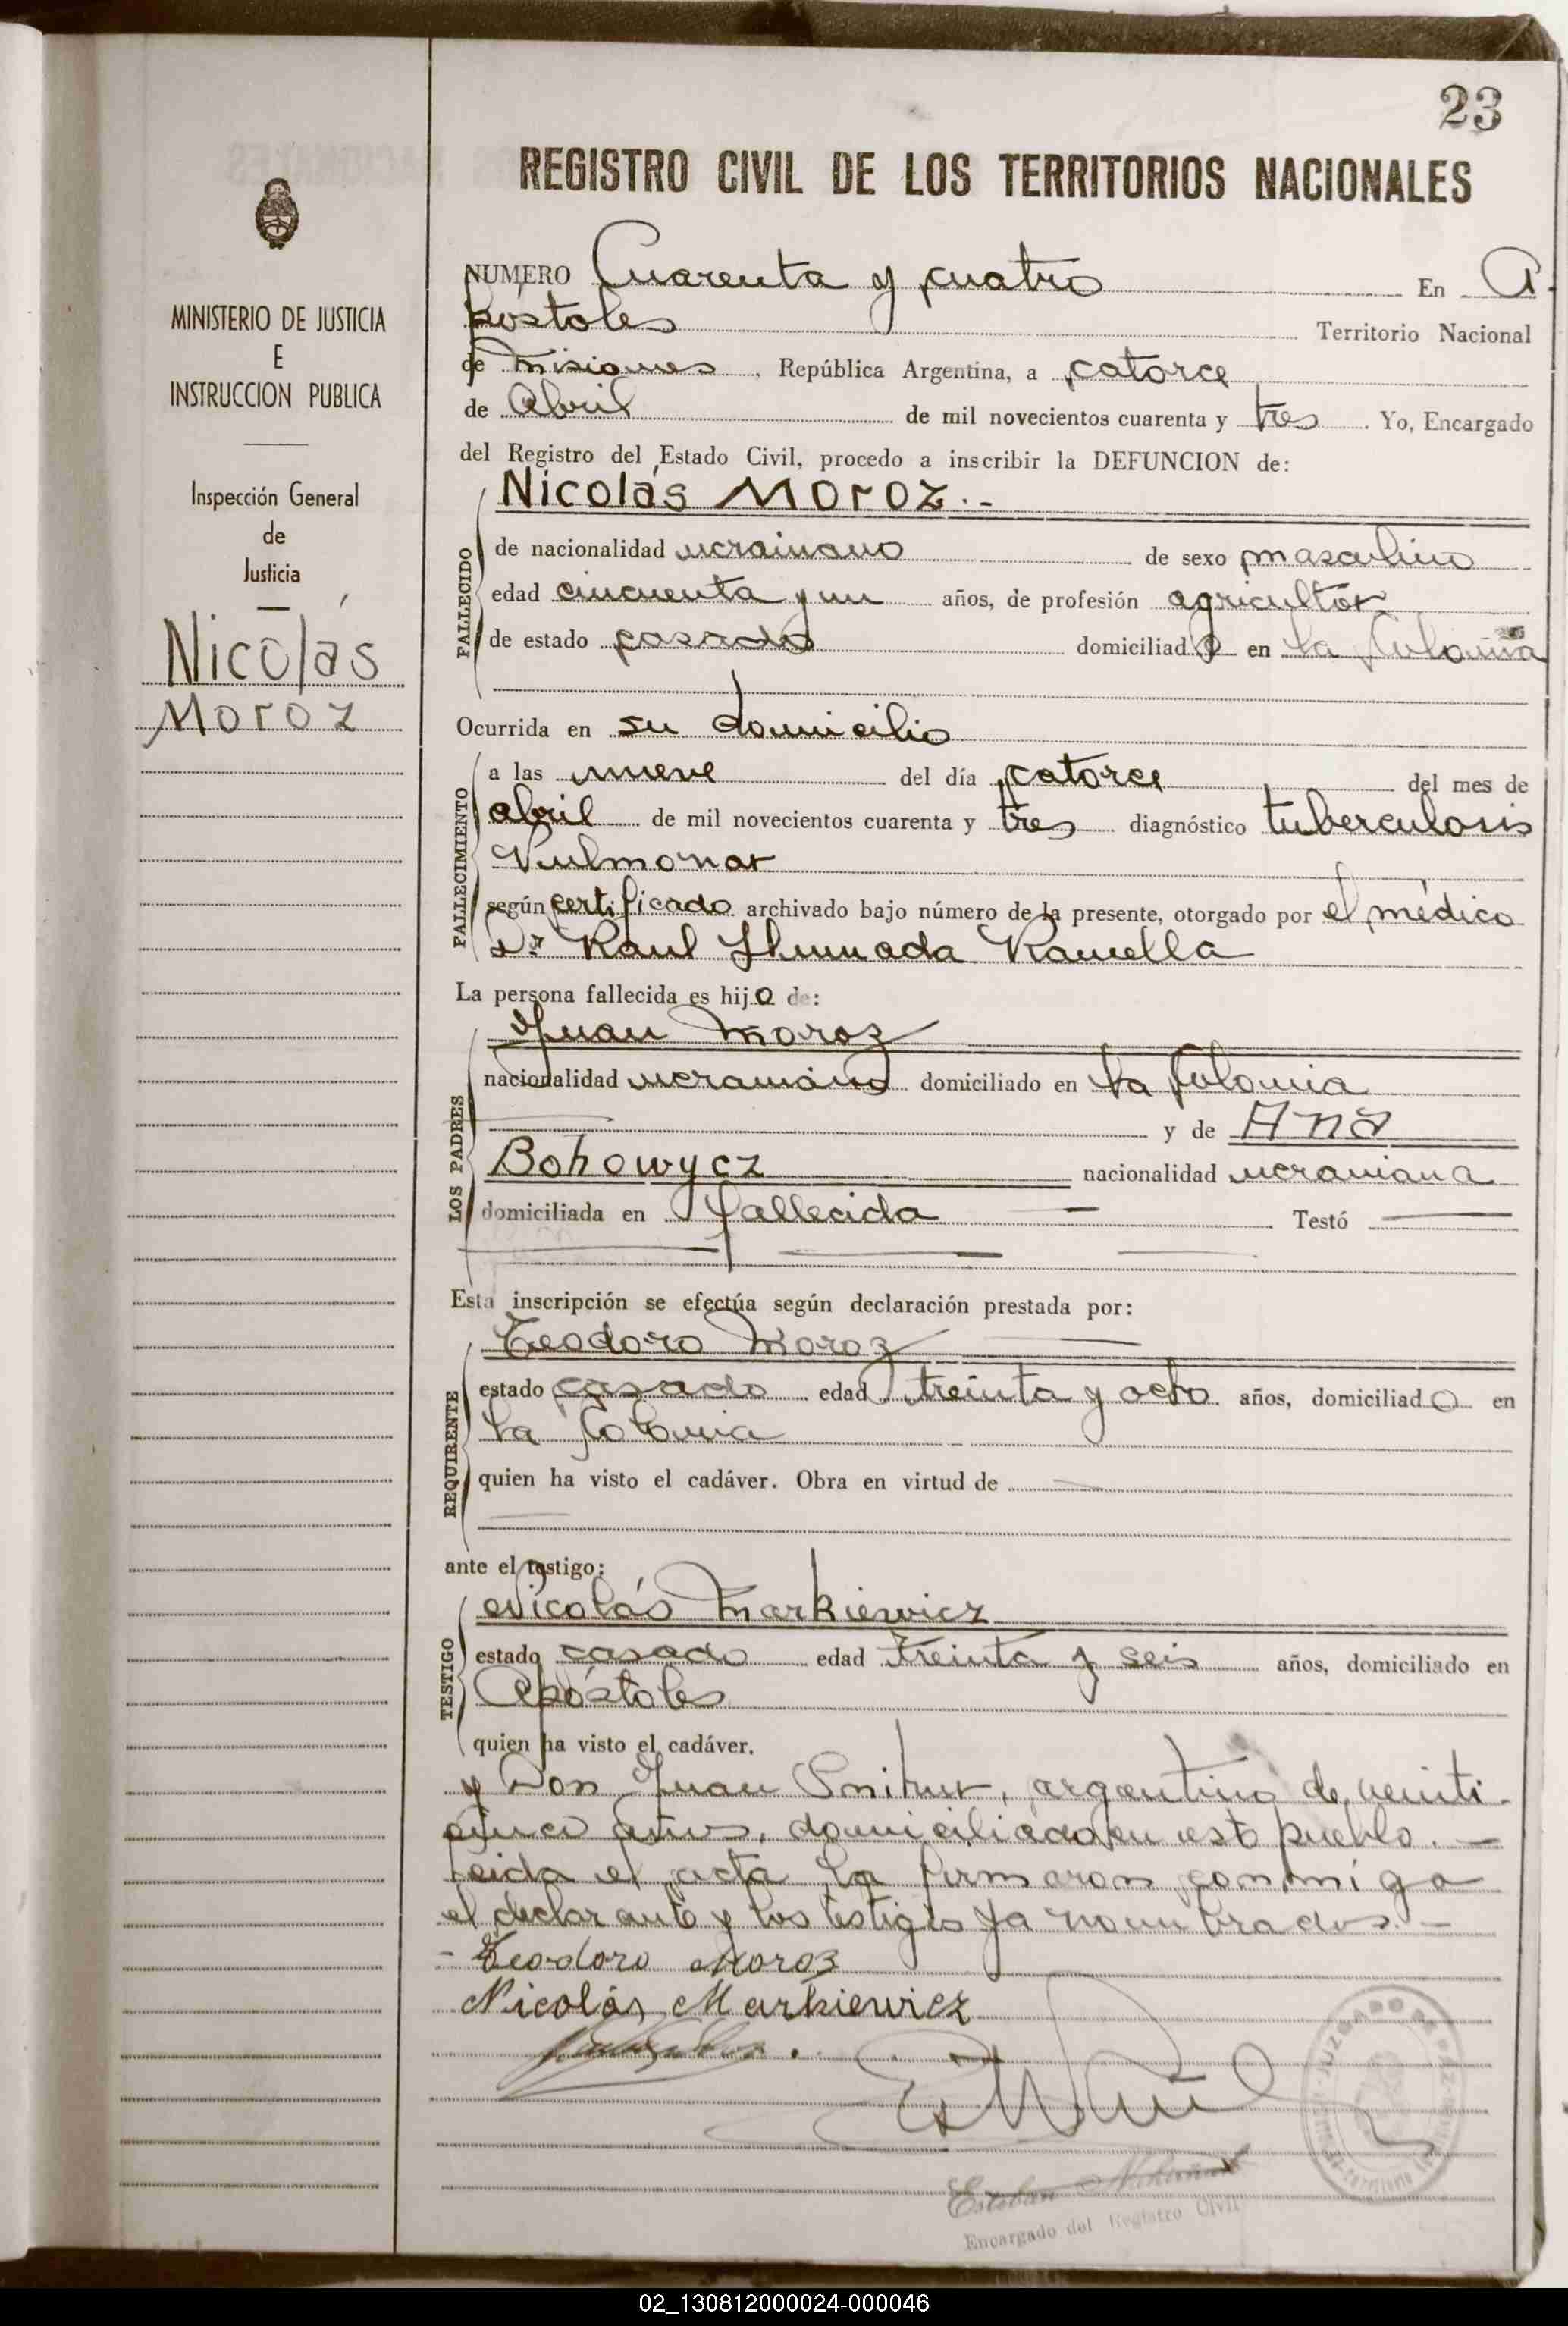 23
REGISTRO CIVIL DE LOS TERRITORIOS NACIONALES
MINISTERIO DE JUSTICIA
E
INSTRUCCION PUBLICA
Inspección General
de
Justicia
Nicolás
Moroz
NUMERO Cuarenta y cuatro En A-
póstoles Territorio Nacional
de Misiones, República Argentina, a catorce
de Abril de mil novecientos cuarenta y tres. Yo, Encargado
del Registro del Estado Civil, procedo a inscribir la DEFUNCION de:
Nicolás Moroz.-
FALLECIDO
de nacionalidad ucraniano de sexo masculino
edad cincuenta y un años, de profesión agricultor
de estado casado domiciliado en la Colonia
Ocurrida en su domicilio
FALLECIMIENTO
a las nueve del día catorce del mes de
abril de mil novecientos cuarenta y tres diagnóstico tuberculosis
Pulmonar
según certificado archivado bajo número de la presente, otorgado por el médico
Dr. Raul Ramella
La persona fallecida es hijo de:
LOS PADRES
Juan Moroz
nacionalidad ucraniano domiciliado en la Colonia
y de Ana
Bohowycz nacionalidad ucraniana
domiciliada en fallecida — Testó —
Esta inscripción se efectúa según declaración prestada por:
REQUIRENTE
Teodoro Moroz
estado casado edad treinta y ocho años, domiciliado en
la Colonia
quien ha visto el cadáver. Obra en virtud de —
ante el testigo:
TESTIGO
Nicolás Markiewicz
estado casado edad treinta y seis años, domiciliado en
Apóstoles
quien ha visto el cadáver.
y Don Juan, argentino de veinti-
cinco años, domiciliado en este pueblo.—
Leida el acta la firmaron conmigo
el declarante y los testigos ya nombrados.—
- Teodoro Moroz
Nicolás Markiewicz
JUZGADO DE PAZ
Esteban
Encargado del Registro Civil
02_130812000024-000046